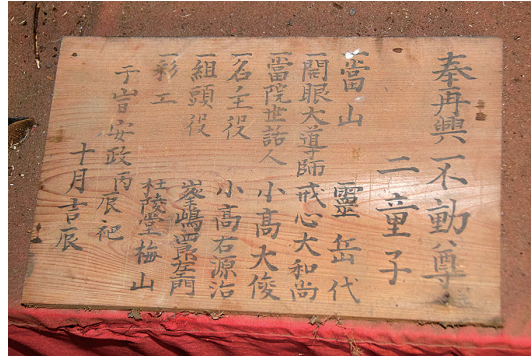 奉再興不動尊
二童子
一當山 靈岳代
一開眼大導師 戒心大和尚
一當院世話人 小高大俊
一名主役 小高右源治
一組頭役 峯嶋四郎左衛門
一彩工 杜陵堂梅山
于旹安政丙辰祀
十月吉辰